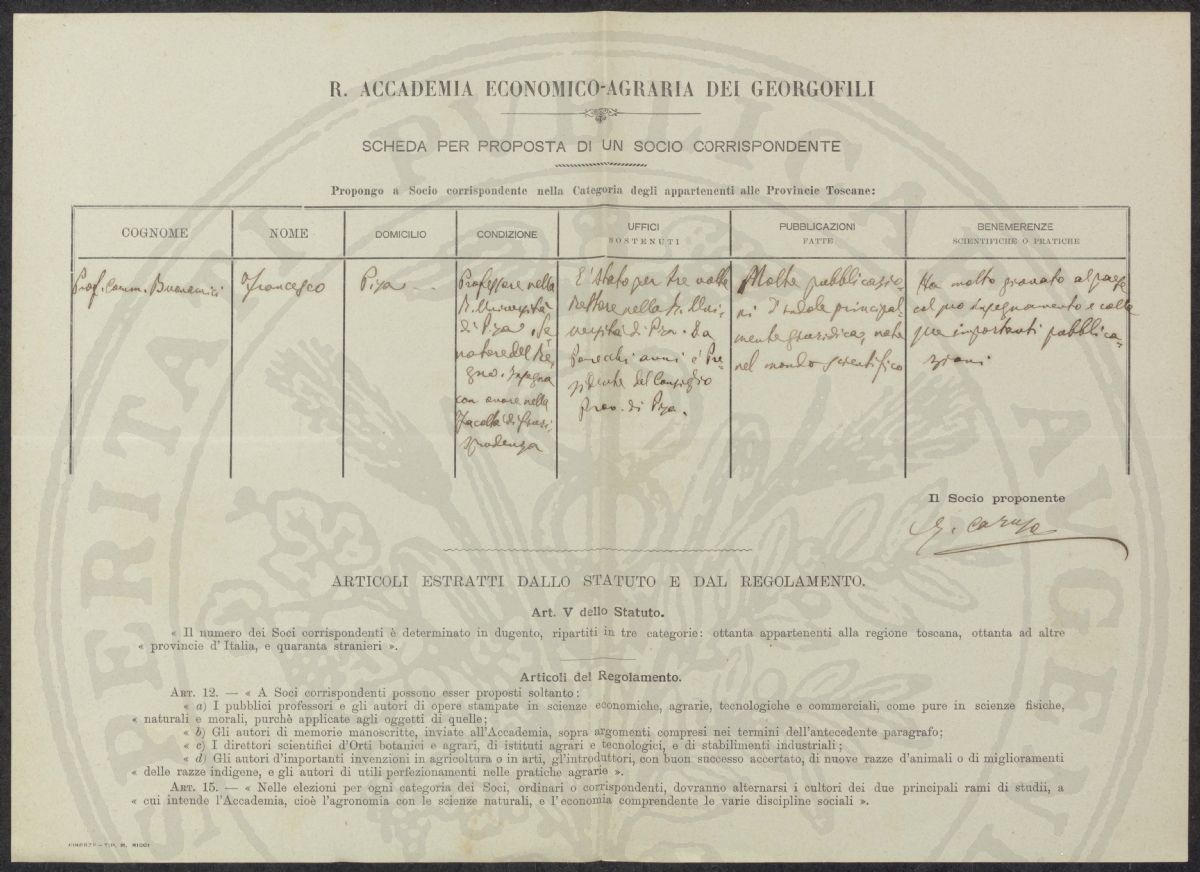 R. ACCADEMIA ECONOMICO-AGRARIA DEI GEORGOFILI
SCHEDA PER PROPOSTA DI UN SOCIO CORRISPONDENTE
Propongo a Socio corrispondente nella Categoria degli appartenenti alle Provincie Toscane:
COGNOME
NOME
DOMICILIO
CONDIZIONE
UFFICI
SOSTENUTI
PUBBLICAZIONI
FATTE
BENEMERENZE
SCIENTIFICHE O PRATICHE
Prof. Comm. Buonamici
Francesco
Pisa
Professore nella
R. Università
di Pisa. Se-
natore del Re-
gno. Insegna
con onore nella
Facoltà di Giuri-
sprudenza
E' stato per tre volte
Rettore nella R. Uni-
versità di Pisa. Da
Parecchi anni è Pre-
sidente del Consiglio
Prov. di Pisa.
Molte pubblicazio-
ni d'indole principal-
mente giuridica, note
nel mondo scientifico
Ha molto giovato al paese
col suo insegnamento e colle
sue importanti pubblica-
zioni
Il Socio proponente
G. Caruso
ARTICOLI ESTRATTI DALLO STATUTO E DAL REGOLAMENTO.
Art. V dello Statuto.
« Il numero dei Soci corrispondenti è determinato in dugento, ripartiti in tre categorie: ottanta appartenenti alla regione toscana, ottanta ad altre
« provincie d'Italia, e quaranta stranieri ».
Articoli del Regolamento.
ART. 12. — « A Soci corrispondenti possono esser proposti soltanto:
« a) I pubblici professori e gli autori di opere stampate in scienze economiche, agrarie, tecnologiche e commerciali, come pure in scienze fisiche,
« naturali e morali, purchè applicate agli oggetti di quelle;
« b) Gli autori di memorie manoscritte, inviate all'Accademia, sopra argomenti compresi nei termini dell'antecedente paragrafo;
« c) I direttori scientifici d'Orti botanici e agrari, di istituti agrari e tecnologici, e di stabilimenti industriali;
« d) Gli autori d'importanti invenzioni in agricoltura o in arti, gl'introduttori, con buon successo accertato, di nuove razze d'animali o di miglioramenti
« delle razze indigene, e gli autori di utili perfezionamenti nelle pratiche agrarie ».
ART. 15. — « Nelle elezioni per ogni categoria dei Soci, ordinari o corrispondenti, dovranno alternarsi i cultori dei due principali rami di studii, a
« cui intende l'Accademia, cioè l'agronomia con le scienze naturali, e l'economia comprendente le varie discipline sociali ».
FIRENZE – TIP. M. RICCI
PROSPERITATI PVBLICAE AVGENDAE